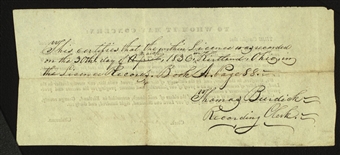 This certifies that the within License was recorded
on the 30th day of 1836, Kirtland, Ohio, in
the License Records Book A Page 88
Thomas Burdick
Recording Clerk